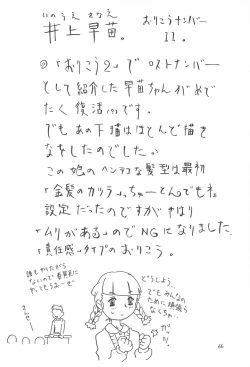 いのうえ さなえ
井上 早苗。
おりこうナンバー
11.
◎「おりこう2」でロストナンバー
として紹介した早苗ちゃんがめで
たく復活(?)です。
でもあの下描はほとんど描き
なおしたのでした。
この娘のヘンテコな髪型は最初
「金髪のカツラ」。ちゃーとんでもね
設定だったのですがやはり
「ムリがある」のでNGになりました。
「責任感」タイプのおりこう。
誰もやりたがら
ないので
どうしよう…
でもみんなの
ために頑張ら
なくちゃ…
66